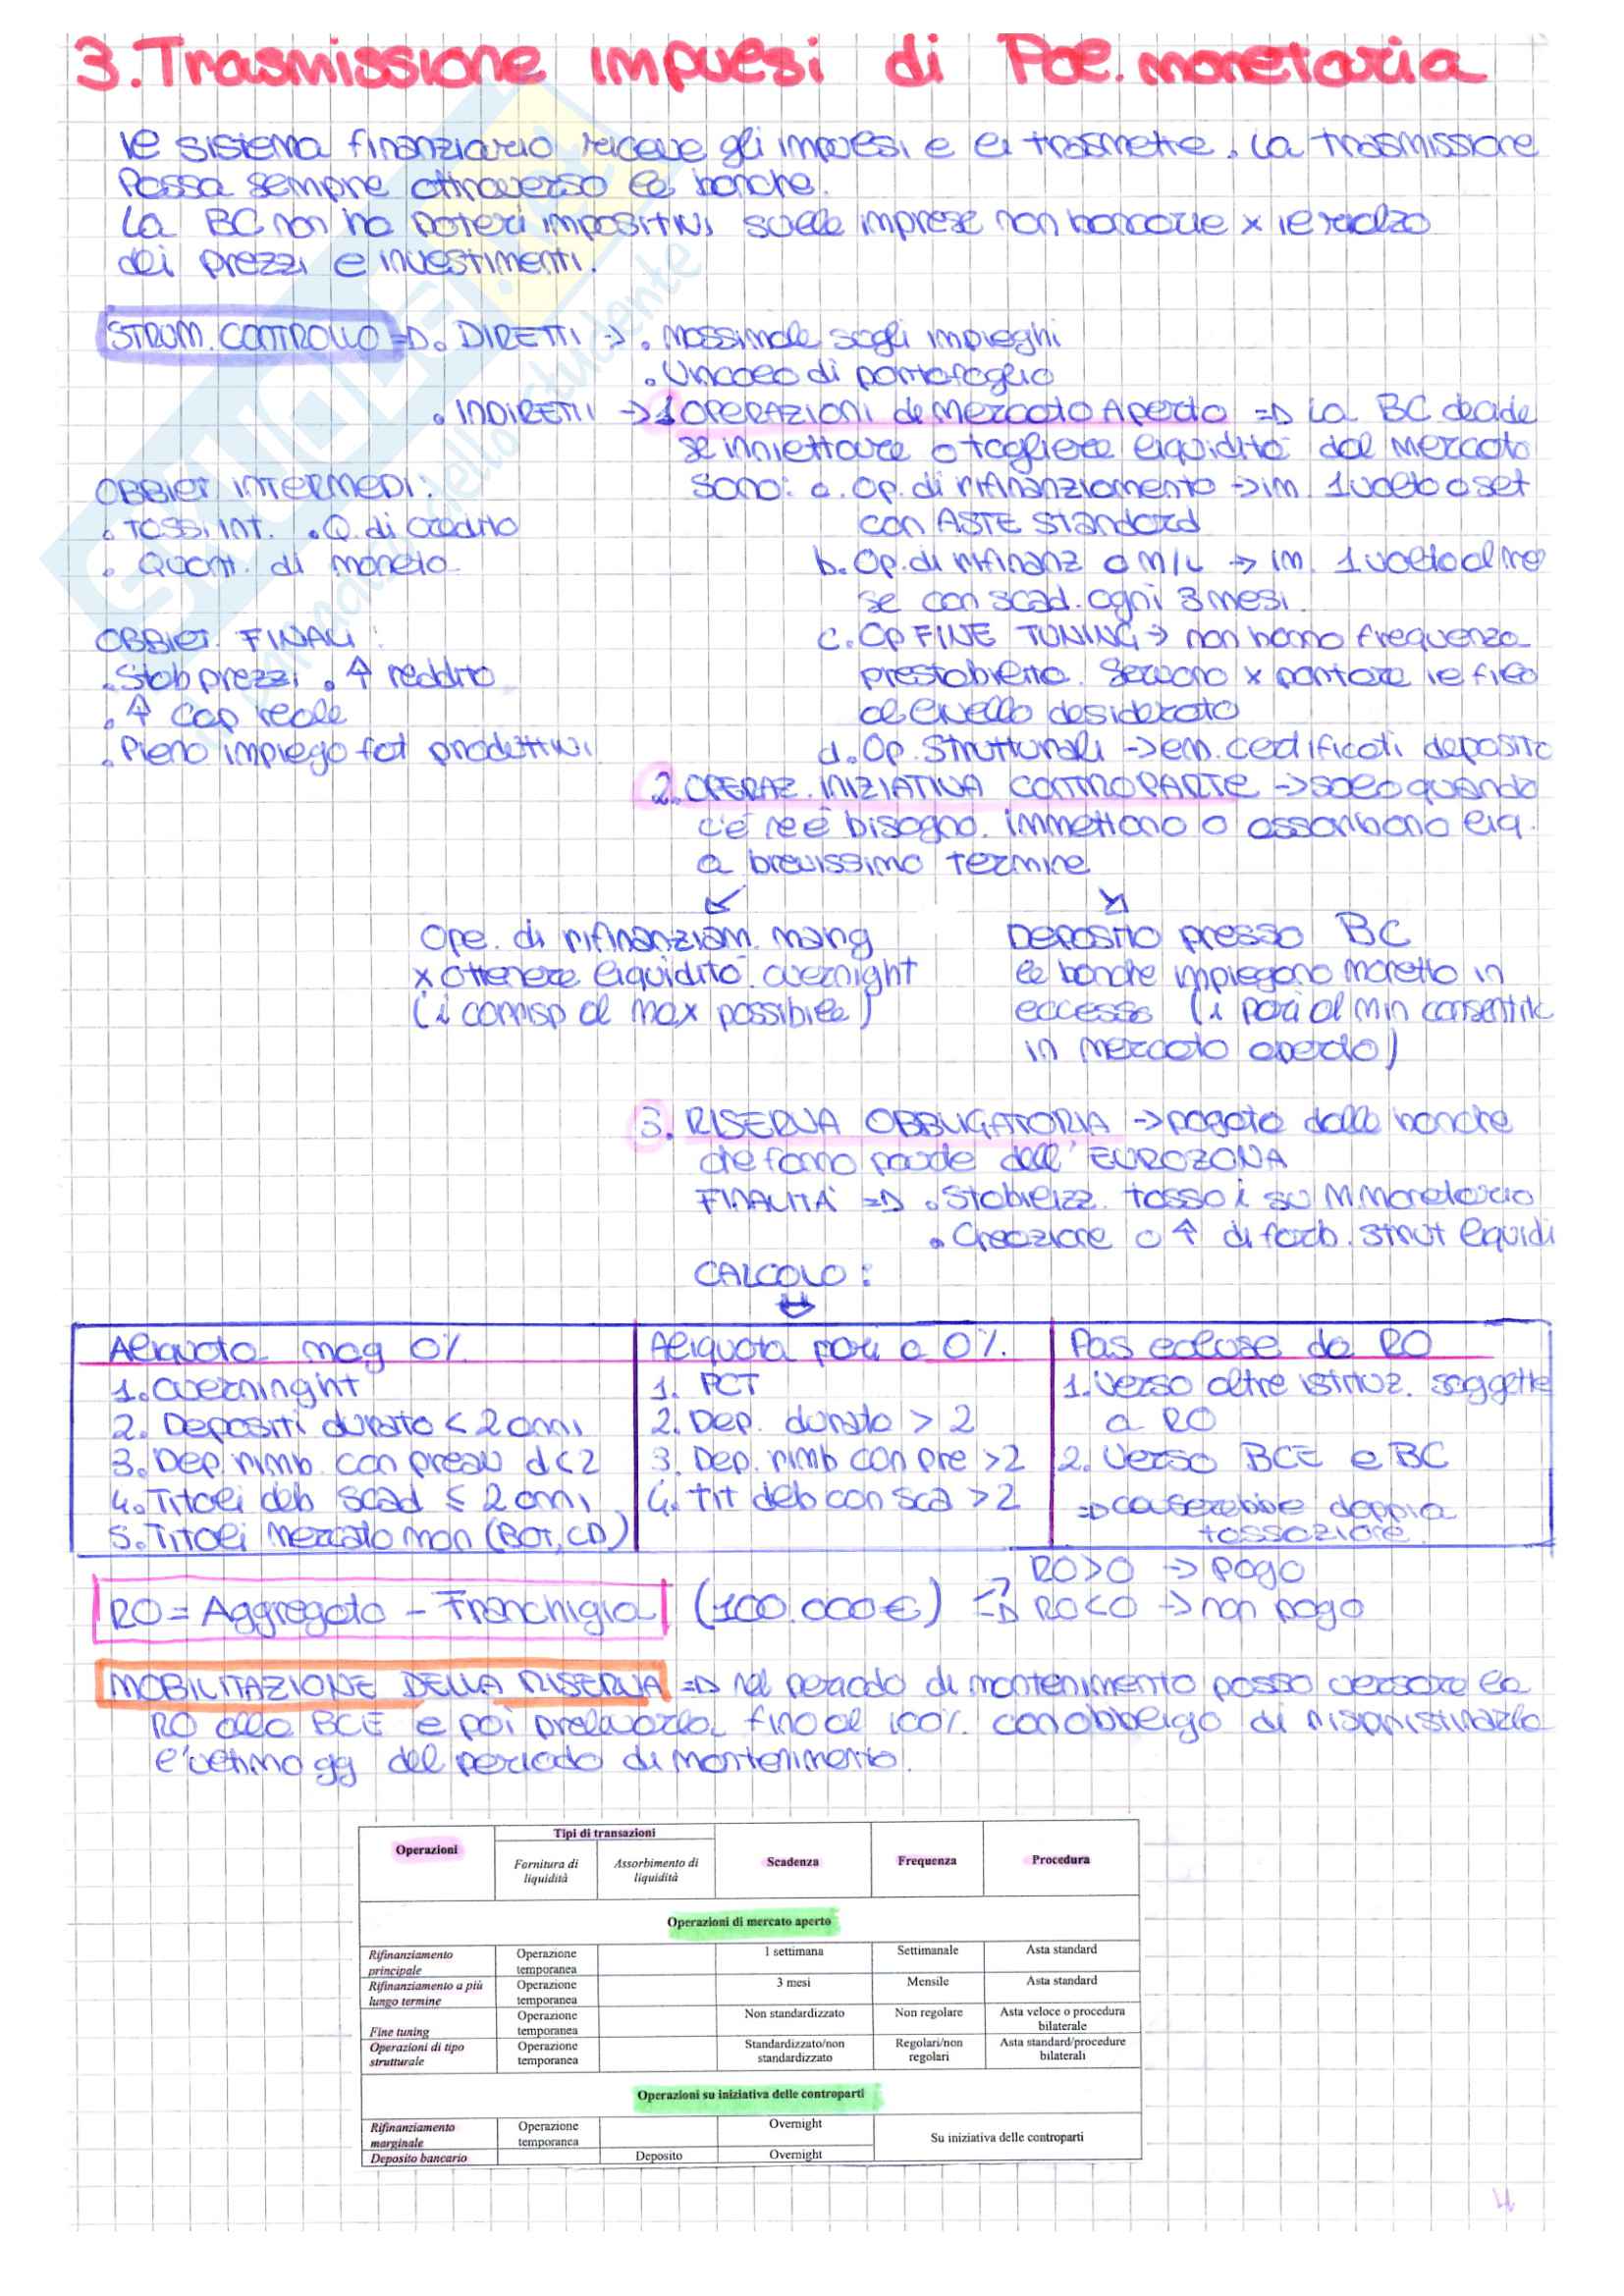 3. Trasmissione impulsi di Pol. monetaria
Il sistema finanziario riceve gli impulsi e li trasmette. La trasmissione
passa sempre attraverso le banche.
La BC non ha poteri impositivi sulle imprese non bancarie x il rialzo
dei prezzi e investimenti.
STRUM. CONTROLLO => . DIRETTI -> . Massimale sugli impieghi
. Vincolo di portafoglio
. INDIRETTI -> 1 OPERAZIONI di Mercato Aperto => La BC decide
se iniettare o togliere liquidità dal mercato
OBBIET INTERMEDI:
. Tass. int. . Q. di credito
. Quant. di moneta
Sono: a. Op. di rifinanziamento -> im. 1 volta a set
con ASTE standard
b. Op. di rifinanz a M/L -> im. 1 volta al me
se con scad. ogni 3 mesi.
OBBIET. FINALI:
. Stab prezzi . ↑ reddito
. ↑ Cap reale
. Pieno impiego fat produttivi
c. Op FINE TUNING -> non hanno frequenza
prestabilita. Servono x portare il fico
al livello desiderato
d. Op. Strutturali -> em. certificati deposito
2. OPERAZ. INIZIATIVA CONTROPARTE -> solo quando
c'è ne è bisogno. immettono o assorbono liq.
a brevissimo termine
Ope. di rifinanziam. marg
x ottenere liquidità overnight
(i corrisp al max possibile)
Deposito presso BC
le banche impiegano moneta in
eccesso (i pari al min consentit
in mercato aperto)
3. RISERVA OBBLIGATORIA -> pagata dalle banche
che fanno parte dell'EUROZONA
FINALITÀ => . Stabilizz. tasso i su M. Monetario
. Creazione o ↑ di fabb. strut liquidi
CALCOLO:
Aliquota mag 0%
1. overninght
2. Depositi durata < 2 anni
3. Dep. rimb. con preav d < 2
4. Titoli deb scad ≤ 2 anni
5. Titoli mercato mon (BOT, CD)
Aliquota pari a 0%.
1. PCT
2. Dep. durata > 2
3. Dep. rimb con pre > 2
4. tit deb con sca > 2
Pas escluse da RO
1. Verso altre istituz. soggette
a RO
2. Verso BCE e BC
=> causerebbe doppia
tassazione
RO = Aggregato - Franchigia (100.000€)
-> RO>0 -> pago
=> RO<0 -> non pago
MOBILITAZIONE DELLA RISERVA => nel periodo di mantenimento posso versare la
RO alla BCE e poi prelevarla fino al 100% con obbligo di ripristinarla
l'ultimo gg del periodo di mantenimento.
Operazioni
Tipi di transazioni
Fornitura di liquidità
Assorbimento di liquidità
Scadenza
Frequenza
Procedura
Operazioni di mercato aperto
Rifinanziamento principale | Operazione temporanea | 1 settimana | Settimanale | Asta standard
Rifinanziamento a più lungo termine | Operazione temporanea | 3 mesi | Mensile | Asta standard
Fine tuning | Operazione temporanea | Non standardizzato | Non regolare | Asta veloce o procedura bilaterale
Operazioni di tipo strutturale | Operazione temporanea | Standardizzato/non standardizzato | Regolari/non regolari | Asta standard/procedure bilaterali
Operazioni su iniziativa delle controparti
Rifinanziamento marginale | Operazione temporanea | Overnight | Su iniziativa delle controparti
Deposito bancario | Deposito | Overnight
4